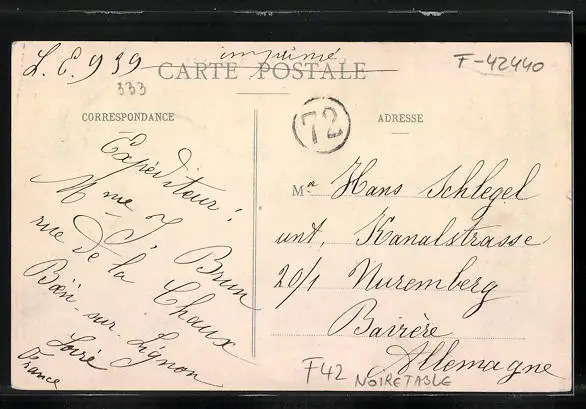 L. E. 939
imprimé
F-42440
CARTE POSTALE
333
CORRESPONDANCE
72
ADRESSE
Expéditeur :
Mme J. Brun
rue de la Chaux
Boën-sur-Lignon
Loire
France
Mr Hans Schlegel
unt. Kanalstrasse
20/1 Nuremberg
Bairère
Allemagne
F42 NOIRETABLE